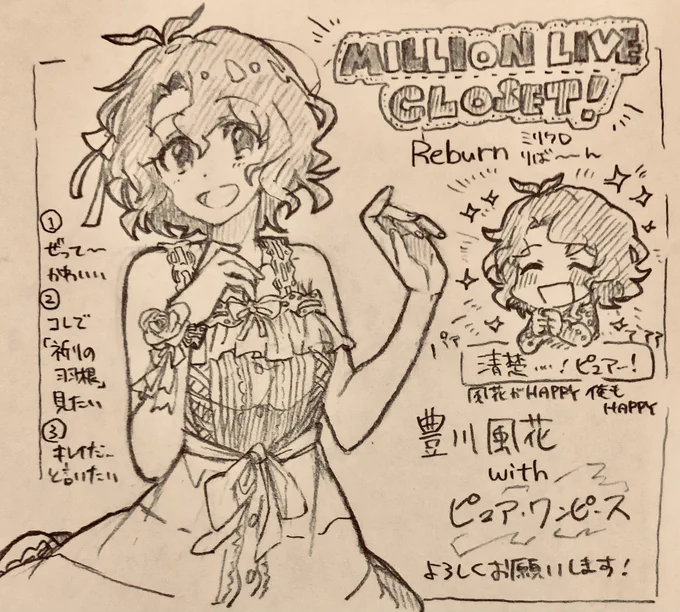 MILLION LIVE
CLOSET!
Reburn ミリクロ
りば〜ん
①
ぜって〜
かわいい
②
コレで
「祈りの
羽根」
見たい
③
キレイだ…
と言いたい
パァ
アアア
清楚…!ピュアー!
風花がHAPPY 俺も
HAPPY
豊川風花
with
ピュア・ワンピース
よろしくお願いします!